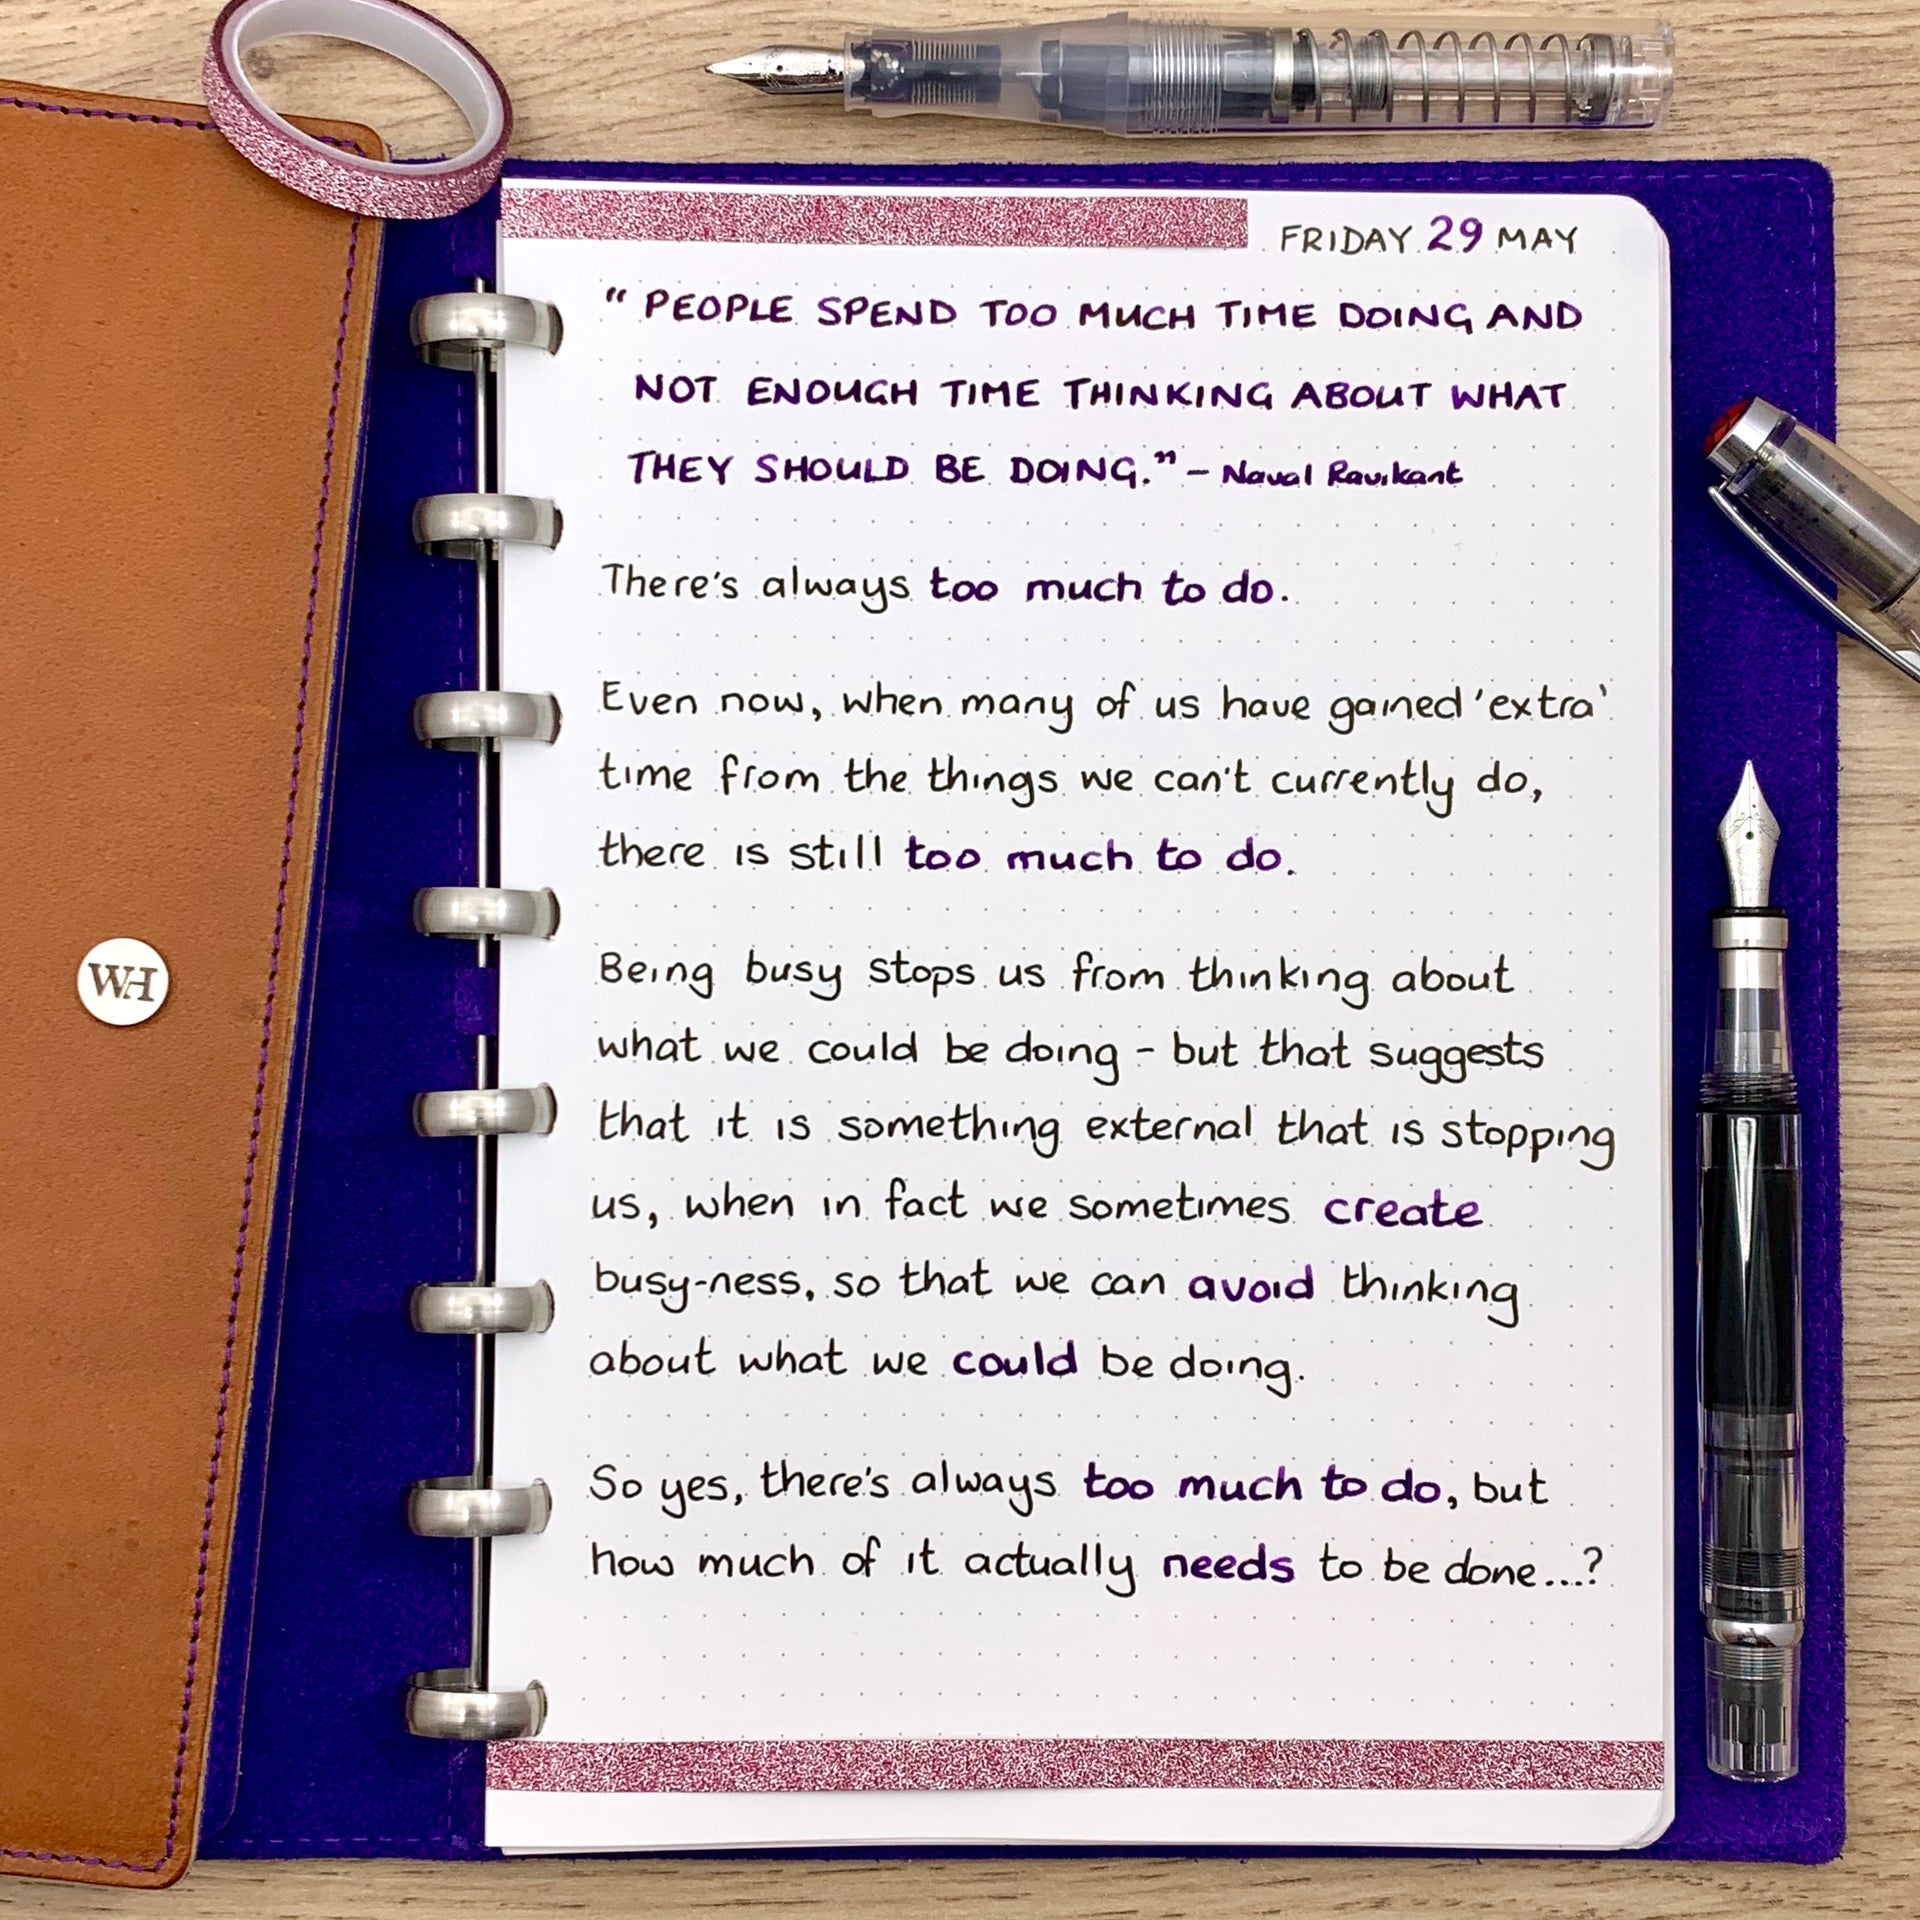 FRIDAY 29 MAY
“ PEOPLE SPEND TOO MUCH TIME DOING AND
NOT ENOUGH TIME THINKING ABOUT WHAT
THEY SHOULD BE DOING.” – Naval Ravikant
There's always too much to do.
Even now, when many of us have gained 'extra'
time from the things we can't currently do,
there is still too much to do.
Being busy stops us from thinking about
what we could be doing - but that suggests
that it is something external that is stopping
us, when in fact we sometimes create
busy-ness, so that we can avoid thinking
about what we could be doing.
So yes, there's always too much to do, but
how much of it actually needs to be done...?
WH